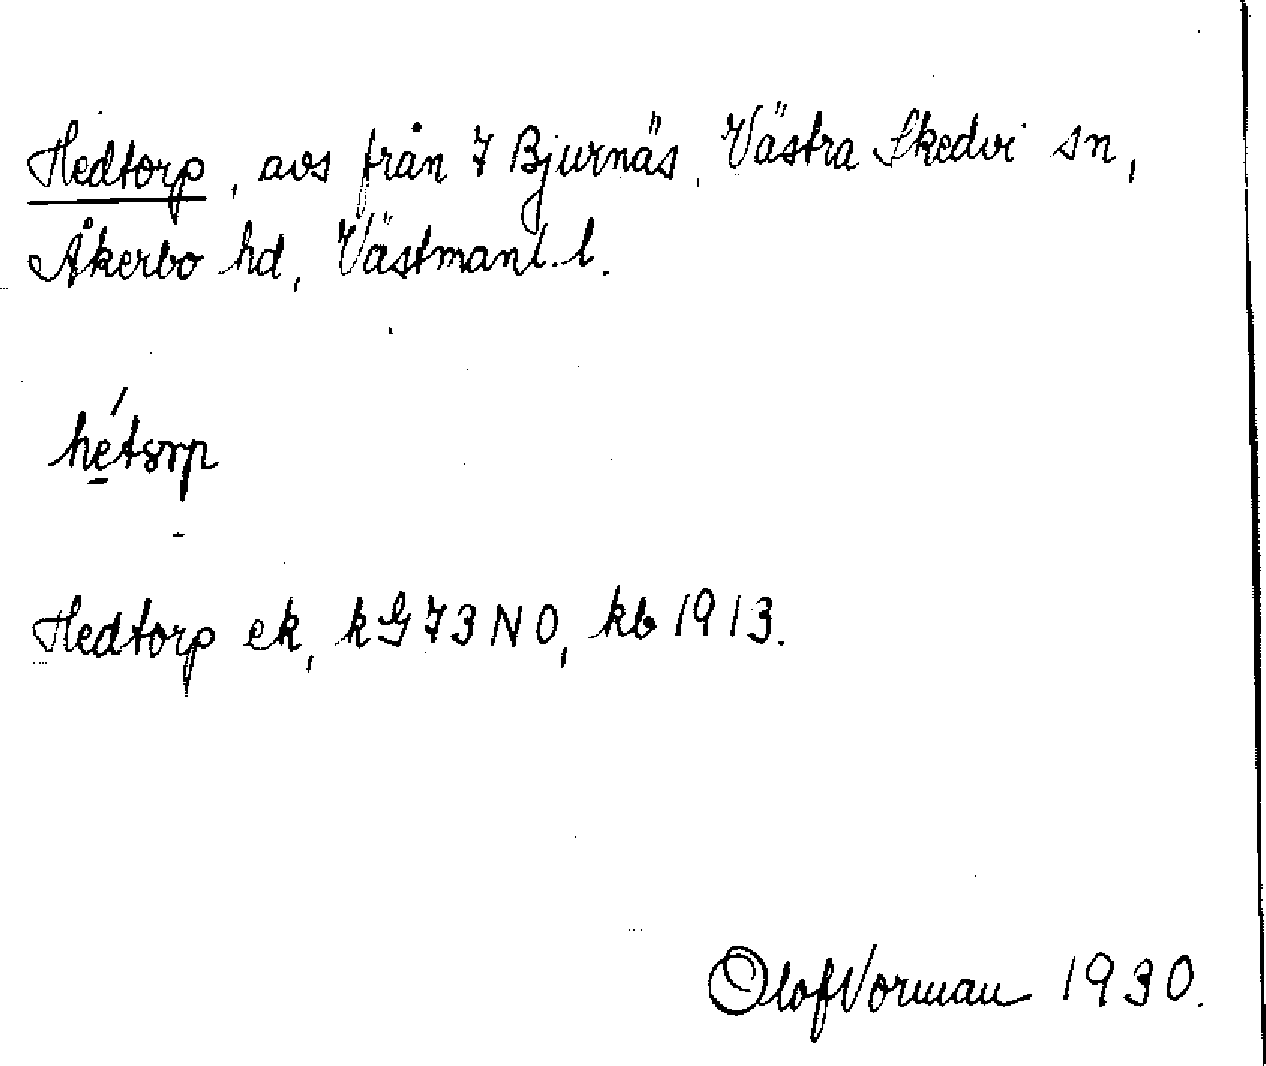 Hedtorp, avs från 7 Bjurnäs, Västra Skedvi sn,
Åkerbo hd, Västmanl. l.
hé̱tɔrp
Hedtorp ek, kG 73 NO, kb 1913.
Olof Vorman 1930.